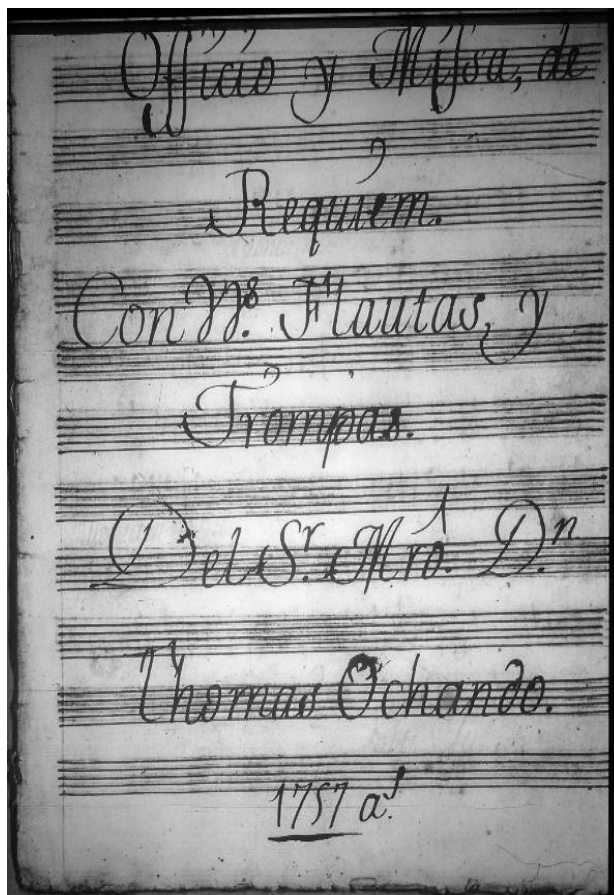 Officio y Missa, de
Requiem.
Con Vs. Flautas, y
Trompas.
Del Sr. Mro. Dn.
Thomas Ochando.
1757 as.